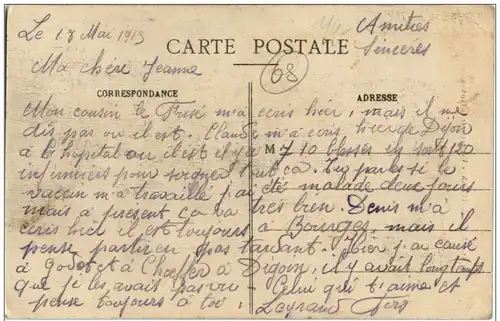 Le 17 Mai 1915
Amitiés
Sincères
CARTE POSTALE
68
Ma chère Jeanne
CORRESPONDANCE
ADRESSE
Mon cousin le Frisé m'a écris hier, mais il me
dis pas ou il est. Claude m'a écris hier de Dijon
à le hopital ou il est il y a 710 blesses ils sont 120
M
infirmiers pour soigner tout ça. Tu parles si le
vaccin m'a travaillé j'ai été malade deux jours
mais à present ça va très bien. Denis m'a
écris hier il est toujours à Bourges mais il
pense partir en pas tardant. Hier j'ai causé
à Godot et à Choffer à Digoin, il y avait longtemps
que je les avais pas vu Celui qui t'aime et
pense toujours à toi. Legrand